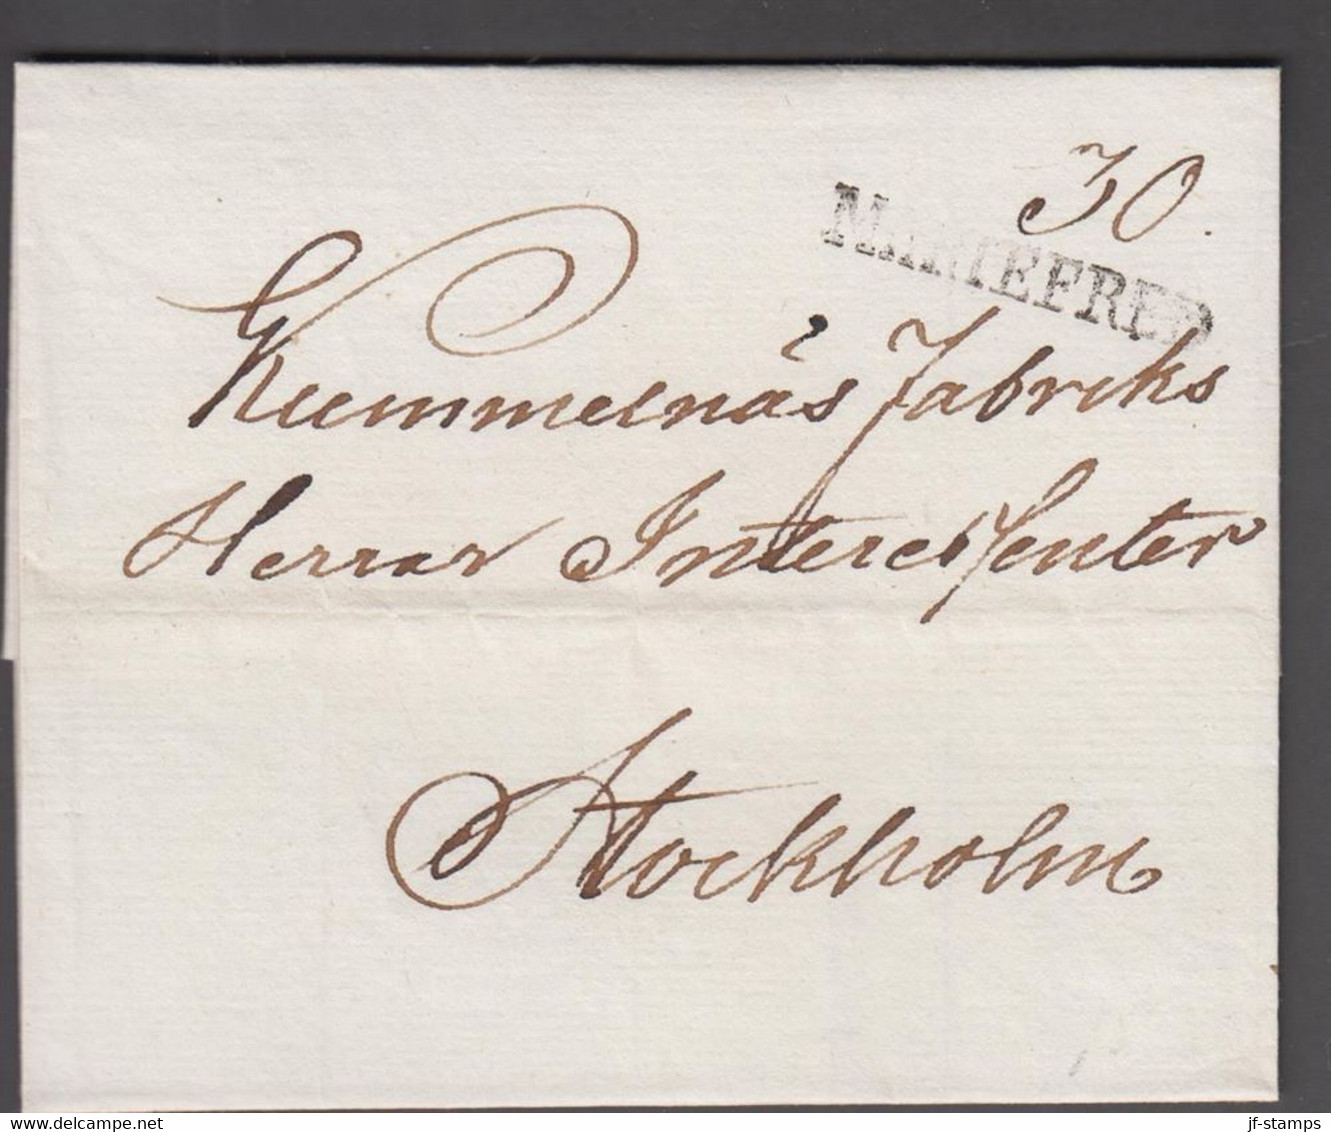 30.
MARIEFRED
Kummelnäs Fabriks
Herrar Interessenter
Stockholm
www.delcampe.net
jf-stamps